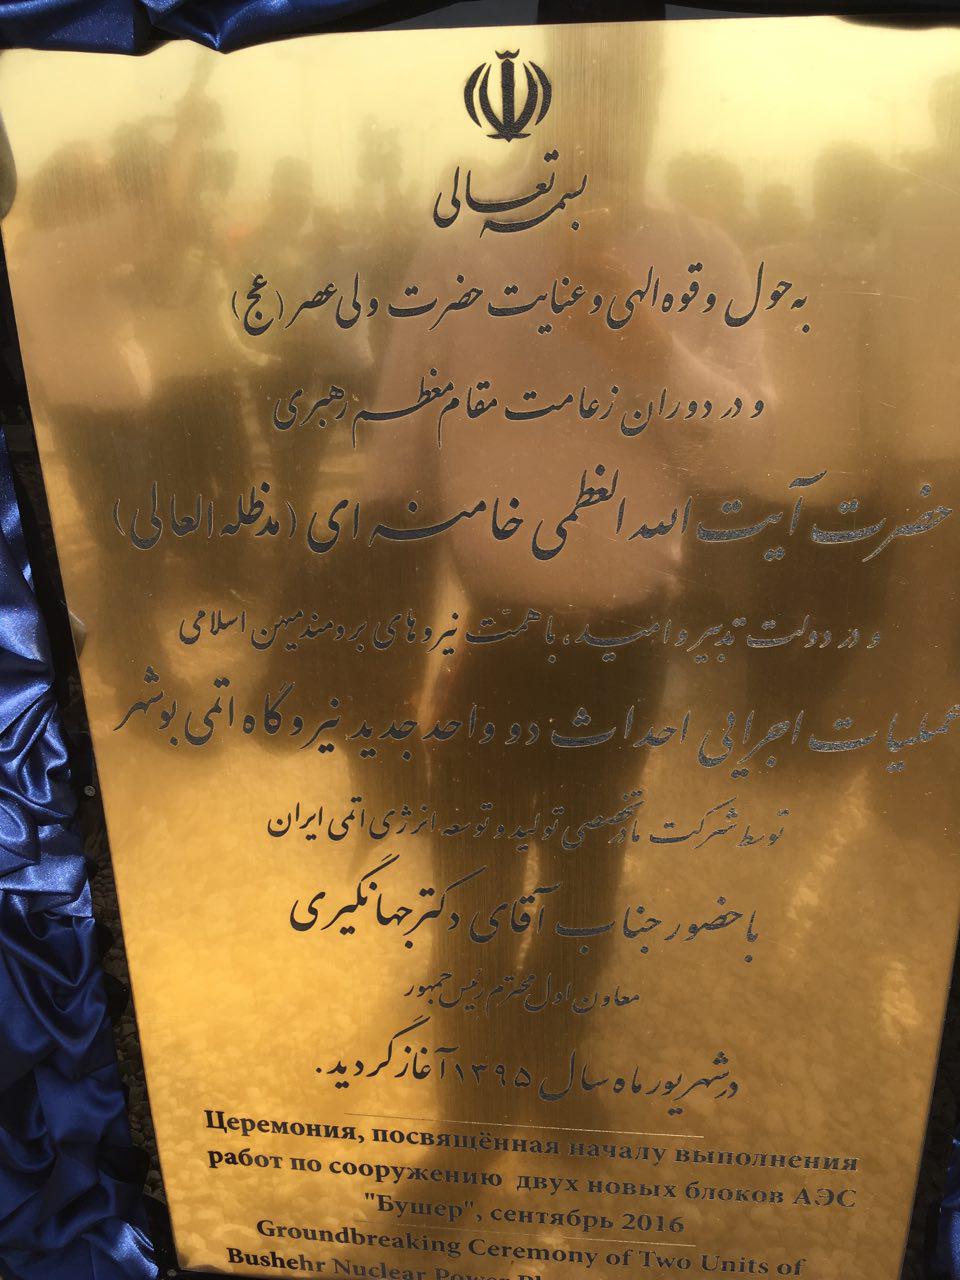 بسمه تعالی
به حول و قوه الهی و عنایت حضرت ولی عصر (عج)
و در دوران زعامت مقام معظم رهبری
حضرت آیت الله العظمی خامنه ای (مدظله العالی)
و در دولت تدبیر و امید، با همت نیروهای برومند میهن اسلامی
عملیات اجرایی احداث دو واحد جدید نیروگاه اتمی بوشهر
توسط شرکت مادر تخصصی تولید و توسعه انرژی اتمی ایران
با حضور جناب آقای دکتر جهانگیری
معاون اول محترم رئیس جمهور
در شهریور ماه سال ۱۳۹۵ آغاز گردید.
Церемония, посвящённая началу выполнения
работ по сооружению двух новых блоков АЭС
"Бушер", сентябрь 2016
Groundbreaking Ceremony of Two Units of
Bushehr Nuclear Power